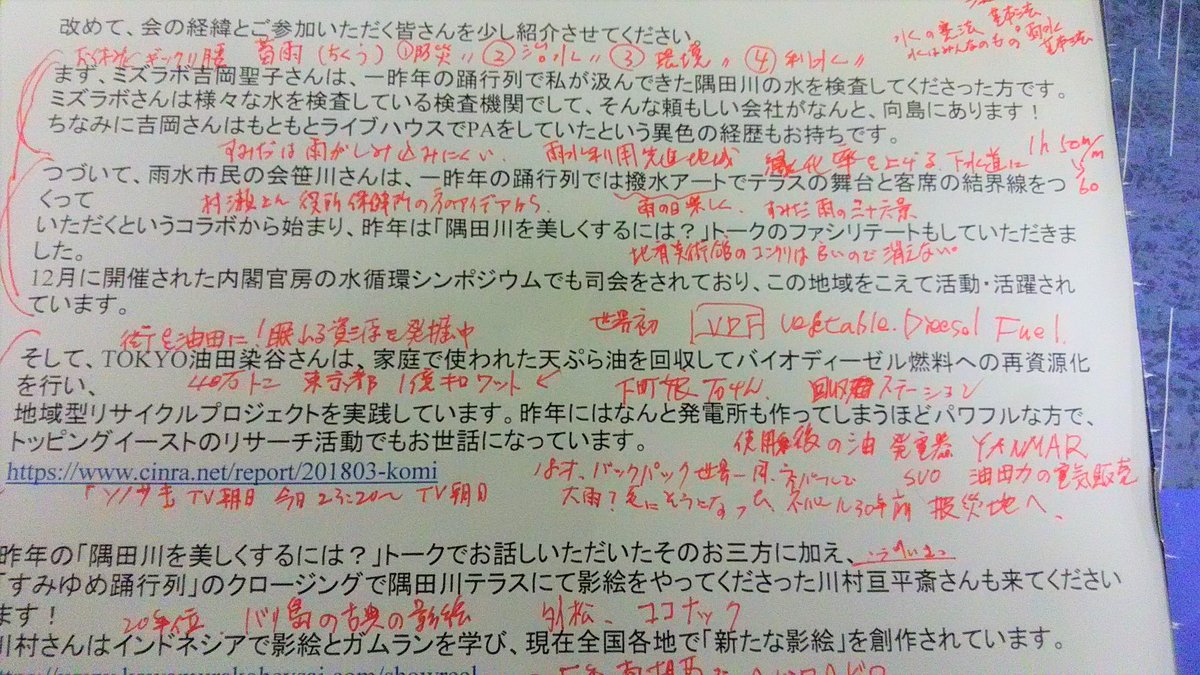 改めて、会の経緯とご参加いただく皆さんを少し紹介させてください。
水の憲法 基本法
水はみんなのもの 雨水基本法
蓄雨(ちくう) ①防災 〃 ②治水 〃 ③環境 〃 ④利水 〃
まず、ミズラボ吉岡聖子さんは、一昨年の踊行列で私が汲んできた隅田川の水を検査してくださった方です。
ミズラボさんは様々な水を検査している検査機関でして、そんな頼もしい会社がなんと、向島にあります！
ちなみに吉岡さんはもともとライブハウスでPAをしていたという異色の経歴もお持ちです。
すみだは雨がしみ込みにくい. 雨水利用先進地域 緑化率を上げる. 下水道に 1h 50m/m
60
つづいて、雨水市民の会笹川さんは、一昨年の踊行列では撥水アートでテラスの舞台と客席の結界線をつ
くって
村瀬さん 役所保健所の方のアイデアから. 雨の日楽しく. すみだ雨の三十六景
いただくというコラボから始まり、昨年は「隅田川を美しくするには？」トークのファシリテートもしていただきま
した。
北斎美術館のコンクリは良いので消えない。
12月に開催された内閣官房の水循環シンポジウムでも司会をされており、この地域をこえて活動・活躍され
ています。
街を油田に！眠れる資源を発掘中 世界初 VDF Vegetable. Diesel Fuel.
そして、TOKYO油田染谷さんは、家庭で使われた天ぷら油を回収してバイオディーゼル燃料への再資源化
を行い、
40万トン 東京都 1億キロワット 下町娘 回収ステーション
地域型リサイクルプロジェクトを実践しています。昨年にはなんと発電所も作ってしまうほどパワフルな方で、
トッピングイーストのリサーチ活動でもお世話になっています。
使用後の油 発電器 YANMAR
https://www.cinra.net/report/201803-komi
バックパック世界一周. ネパールで SVO 油田力の電気販売
TV朝日 今日 23:20〜 TV朝日
大雨？ ネパール30年前 被災地へ.
昨年の「隅田川を美しくするには？」トークでお話しいただいたそのお三方に加え、
「すみゆめ踊行列」のクロージングで隅田川テラスにて影絵をやってくださった川村亘平斎さんも来てください
ます！
20年位 バリ島の古典の影絵 ココナッツ
川村さんはインドネシアで影絵とガムランを学び、現在全国各地で「新たな影絵」を創作されています。